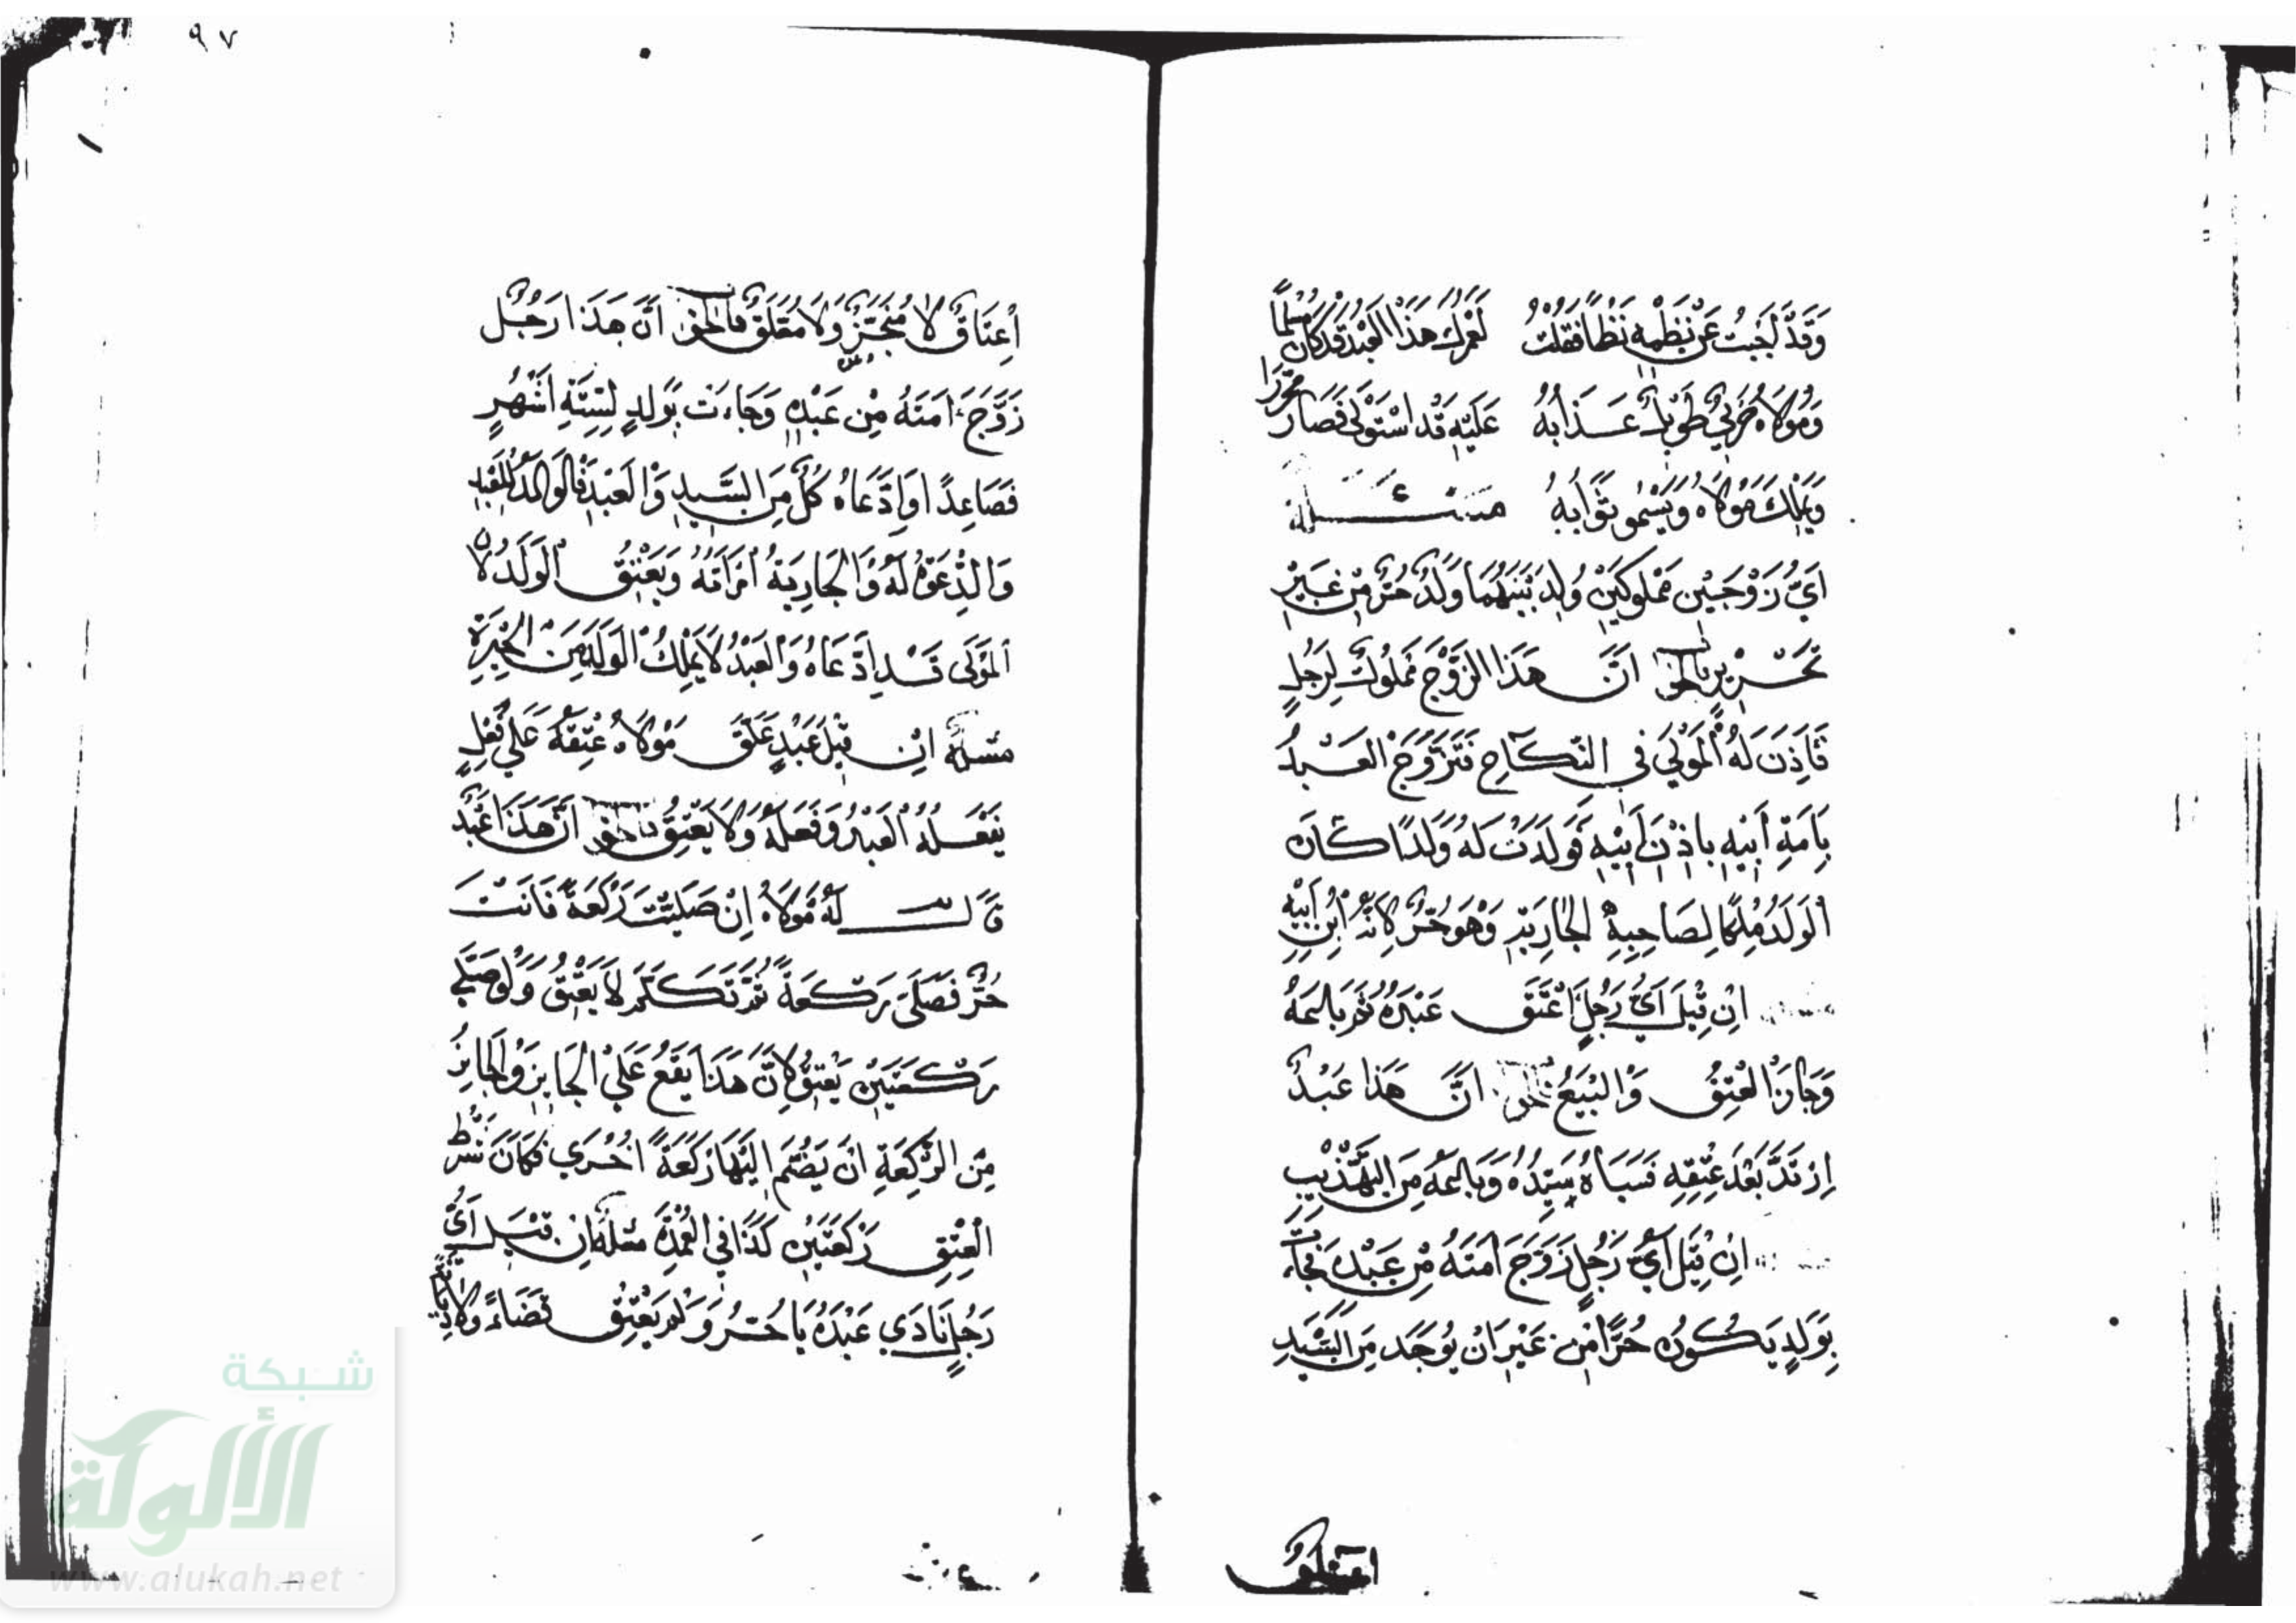 ٩٧
وَقَدْ أَجَبْتُ عَنْ نَظْمِهِ نَظْمًا فَقُلْتُ لَعَمْرُكَ هَذَا الْعَبْدُ قَدْ كَانَ مُسْلِمًا
وَمَوْلَاهُ حَرْبِيٌّ طَوِيلٌ عَذَابُهُ عَلَيْهِ قَدِ اسْتَوْلَى فَصَارَ مُحَرَّرًا
وَيَمْلِكُ مَوْلَاهُ وَيَسْمُو ثَوَابُهُ مسئلة
أَيُّ زَوْجَيْنِ مَمْلُوكَيْنِ وُلِدَ بَيْنَهُمَا وَلَدٌ حُرٌّ مِنْ غَيْرِ
تَحْرِيرٍ فالجواب أَنَّ هَذَا الزَّوْجَ مَمْلُوكٌ لِرَجُلٍ
فَأَذِنَ لَهُ الْمَوْلَى فِي النِّكَاحِ فَتَزَوَّجَ الْعَبْدُ
بِأَمَةِ أَبِيهِ بِإِذْنِ أَبِيهِ فَوَلَدَتْ لَهُ وَلَدًا كَانَ
الْوَلَدُ مِلْكًا لِصَاحِبِهِ الْجَارِيَةِ وَهُوَ حُرٌّ لِأَنَّهُ ابْنُ ابْنِهِ
مسئلة إِنْ قِيلَ أَيُّ رَجُلٍ أَعْتَقَ عَبْدَهُ ثُمَّ بَاعَهُ
وَجَازَ الْعِتْقُ وَالْبَيْعُ فالجواب أَنَّ هَذَا عَبْدٌ
ارْتَدَّ بَعْدَ عِتْقِهِ فَسَبَاهُ سَيِّدُهُ وَبَاعَهُ مِنَ التَّهْذِيبِ
مسئلة إِنْ قِيلَ أَيُّ رَجُلٍ زَوَّجَ أَمَتَهُ مِنْ عَبْدِهِ فَجَاءَتْ
بِوَلَدٍ يَكُونُ حُرًّا مِنْ غَيْرِ أَنْ يُوجَدَ مِنَ السَّيِّدِ
اعتاق
إِعْتَاقٌ لَا مُنَجَّزٌ وَلَا مُعَلَّقٌ فالجواب أَنَّ هَذَا رَجُلٌ
زَوَّجَ أَمَتَهُ مِنْ عَبْدِهِ وَجَاءَتْ بِوَلَدٍ لِسِتَّةِ أَشْهُرٍ
فَصَاعِدًا وَادَّعَاهُ كُلٌّ مِنَ السَّيِّدِ وَالْعَبْدِ فَالْوَلَدُ لِلْعَبْدِ
وَالدَّعْوَةُ لَهُ وَالْجَارِيَةُ امْرَأَتُهُ وَيَعْتِقُ الْوَلَدُ لِأَنَّ
الْمَوْلَى قَدِ ادَّعَاهُ وَالْعَبْدُ لَا يَمْلِكُ الْوَلَدَ مِنَ
مسئلة إِنْ قِيلَ عَبْدٍ عَلَّقَ مَوْلَاهُ عِتْقَهُ عَلَى فِعْلٍ
يَفْعَلُهُ الْعَبْدُ وَفَعَلَهُ وَلَا يَعْتِقُ فالجواب أَنَّ هَذَا عَبْدٌ
قَالَ لَهُ مَوْلَاهُ إِنْ صَلَّيْتَ رَكْعَةً فَأَنْتَ
حُرٌّ فَصَلَّى رَكْعَةً ثُمَّ تَكَلَّمَ لَا يَعْتِقُ وَلَوْ صَلَّى
رَكْعَتَيْنِ يَعْتِقُ لِأَنَّ هَذَا يَقَعُ عَلَى الْجَائِزِ وَالْجَائِزُ
مِنَ الرَّكْعَةِ أَنْ يَضُمَّ إِلَيْهَا رَكْعَةً أُخْرَى فَكَانَ شَرْطُ
الْعِتْقِ رَكْعَتَيْنِ كَذَا فِي الْعُمْدَةِ مسئلة إِنْ قِيلَ أَيُّ
رَجُلٍ نَادَى عَبْدَهُ يَا حُرُّ وَلَمْ يَعْتِقْ قَضَاءً وَلَا دِيَانَةً
شبكة
الألوكة
www.alukah.net